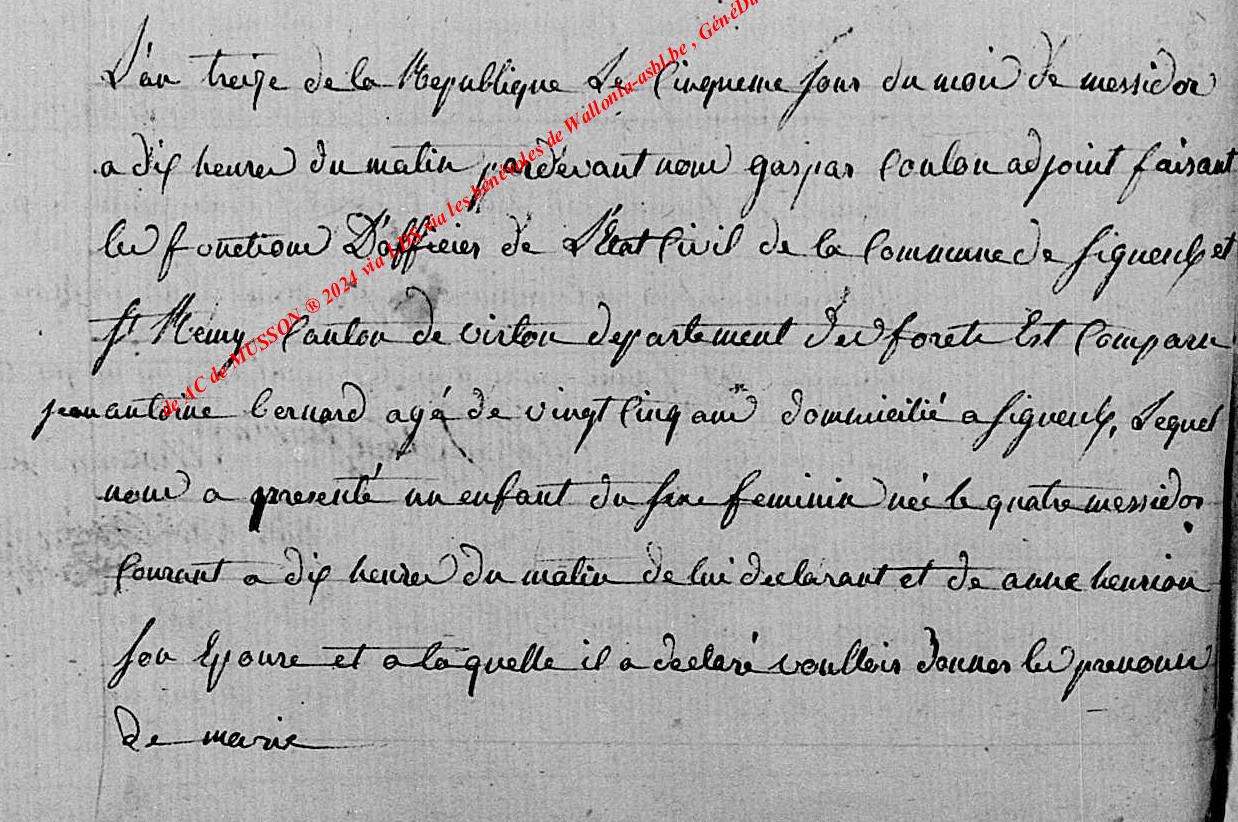 L'an treize de la Republique Le Cinqueme jour du mois de messidor
a dix heures du matin pardevant nous gaspar Coulon adjoint faisant
les fonctions D'afficier de L'Etat Civil de la Commune de Signeulx et
St Remy Canton de virton departement des forets Est Comparu
jean antoine bernard agé de vingt Cinq ans dommicilié a Signeulx, Lequel
nous a presenté un enfant du sexe feminin née le quatre messidor
Courant a dix heures du matin de lui declarant et de anne henrion
son Epouse et a laquelle il a declaré voulloir donner les prenoms
de marie
de AC de MUSSON ® 2024 via via les bénévoles de Wallonia-asbl.be , GénéDa